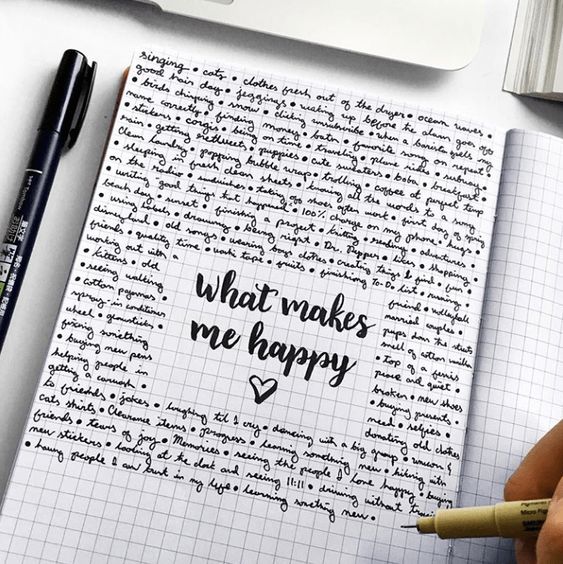 singing • cats • clothes fresh out of the dryer • ocean waves •
good hair day • jeggings • waking up before the alarm goes off
• birds chirping • snow • clicking unsubscribe • when a barista gets my
name correctly • finding money • bates • favorite song on repeat
• stickers • corgis • being on time • traveling • plane rides • subway •
rain • getting retweets • puppies • cute sweaters • boba • breakfast •
clean laundry • popping bubble wrap • trolling • coffee at perfect temp
• sleeping in fresh clean sheets • knowing all the words to a song
on the radio • sandwiches • taking off shoes after work • first day of spring
• writing good things that happened • 100% charge on my phone • hugs •
beach day • sunset • finishing a project • knitting • reading • adventures •
using labels • drawing • being right • Dr. Pepper • shopping
disneyland • old songs • wearing boys clothes • creating things • fun •
friends • quality time • washi tape • fruits • finishing to Do list • running
working out with a friend • volleyball
• kittens • old married couples •
• seeing walking pups down the streets
cotton pajamas • smell of cotton
spray in conditioner • top of a ferris
wheel • peace and quiet •
fixing something broken • new shoes
• buying new pens • buying presents •
helping people in need • selfies •
getting a carwash • donating old clothes
to friends • jokes • laughing til I cry • dancing with a big group •
cats shirts • Clearance items • progress • learning something new • with
friends • tears of joy • Memories • seeing the people I love happy • buying
new stickers • looking at the clock and seeing 11:11 • driving without
• having people I can trust in my life • learning something new •
what makes
me happy